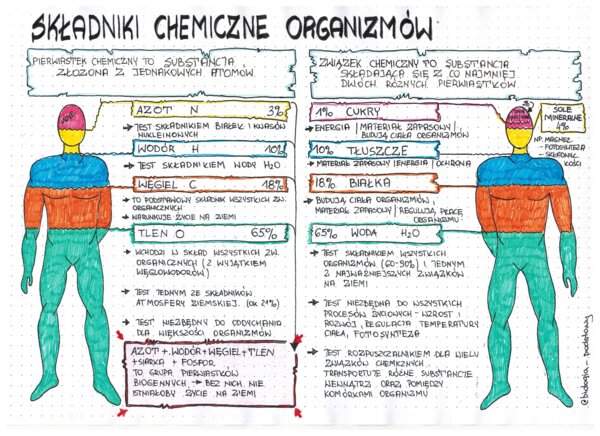 SKŁADNIKI CHEMICZNE ORGANIZMÓW
PIERWIASTEK CHEMICZNY TO SUBSTANCJA
ZŁOŻONA Z JEDNAKOWYCH ATOMÓW
AZOT N 3%
→ JEST SKŁADNIKIEM BIAŁEK I KWASÓW
NUKLEINOWYCH
WODÓR H 10%
→ JEST SKŁADNIKIEM WODY H2O
WĘGIEL C 18%
→ TO PODSTAWOWY SKŁADNIK WSZYSTKICH ZW.
ORGANICZNYCH
→ WARUNKUJE ŻYCIE NA ZIEMI
TLEN O 65%
→ WCHODZI W SKŁAD WSZYSTKICH ZW.
ORGANICZNYCH (Z WYJĄTKIEM
WĘGLOWODORÓW)
→ JEST JEDNYM ZE SKŁADNIKÓW
ATMOSFERY ZIEMSKIEJ. (ok 21%)
→ JEST NIEZBĘDNY DO ODDYCHANIA
DLA WIĘKSZOŚCI ORGANIZMÓW
AZOT + WODÓR + WĘGIEL + TLEN
+ SIARKA + FOSFOR
TO GRUPA PIERWIASTKÓW
BIOGENNYCH → BEZ NICH NIE
ISTNIAŁOBY ŻYCIE NA ZIEMI
ZWIĄZEK CHEMICZNY TO SUBSTANCJA
SKŁADAJĄCA SIĘ Z CO NAJMNIEJ
DWÓCH RÓŻNYCH PIERWIASTKÓW
1% CUKRY
→ ENERGIA / MATERIAŁ ZAPASOWY /
BUDUJĄ CIAŁA ORGANIZMU
10% TŁUSZCZE
→ MATERIAŁ ZAPASOWY / ENERGIA / OCHRONA
18% BIAŁKA
→ BUDUJĄ CIAŁA ORGANIZMÓW,
MATERIAŁ ZAPASOWY / REGULUJĄ PRACĘ
ORGANIZMU
65% WODA H2O
→ JEST SKŁADNIKIEM WSZYSTKICH
ORGANIZMÓW (60-90%) I JEDNYM
Z NAJWAŻNIEJSZYCH ZWIĄZKÓW
NA ZIEMI
→ JEST NIEZBĘDNA DO WSZYSTKICH
PROCESÓW ŻYCIOWYCH - WZROST I
ROZWÓJ, REGULACJA TEMPERATURY
CIAŁA, FOTOSYNTEZA
→ JEST ROZPUSZCZALNIKIEM DLA WIELU
ZWIĄZKÓW CHEMICZNYCH.
TRANSPORTUJE RÓŻNE SUBSTANCJE
WEWNĄTRZ ORAZ POMIĘDZY
KOMÓRKAMI ORGANIZMU
SOLE
MINERALNE
4%
NP. MAGNEZ
- FOTOSYNTEZA
- SKŁADNIK
KOŚCI